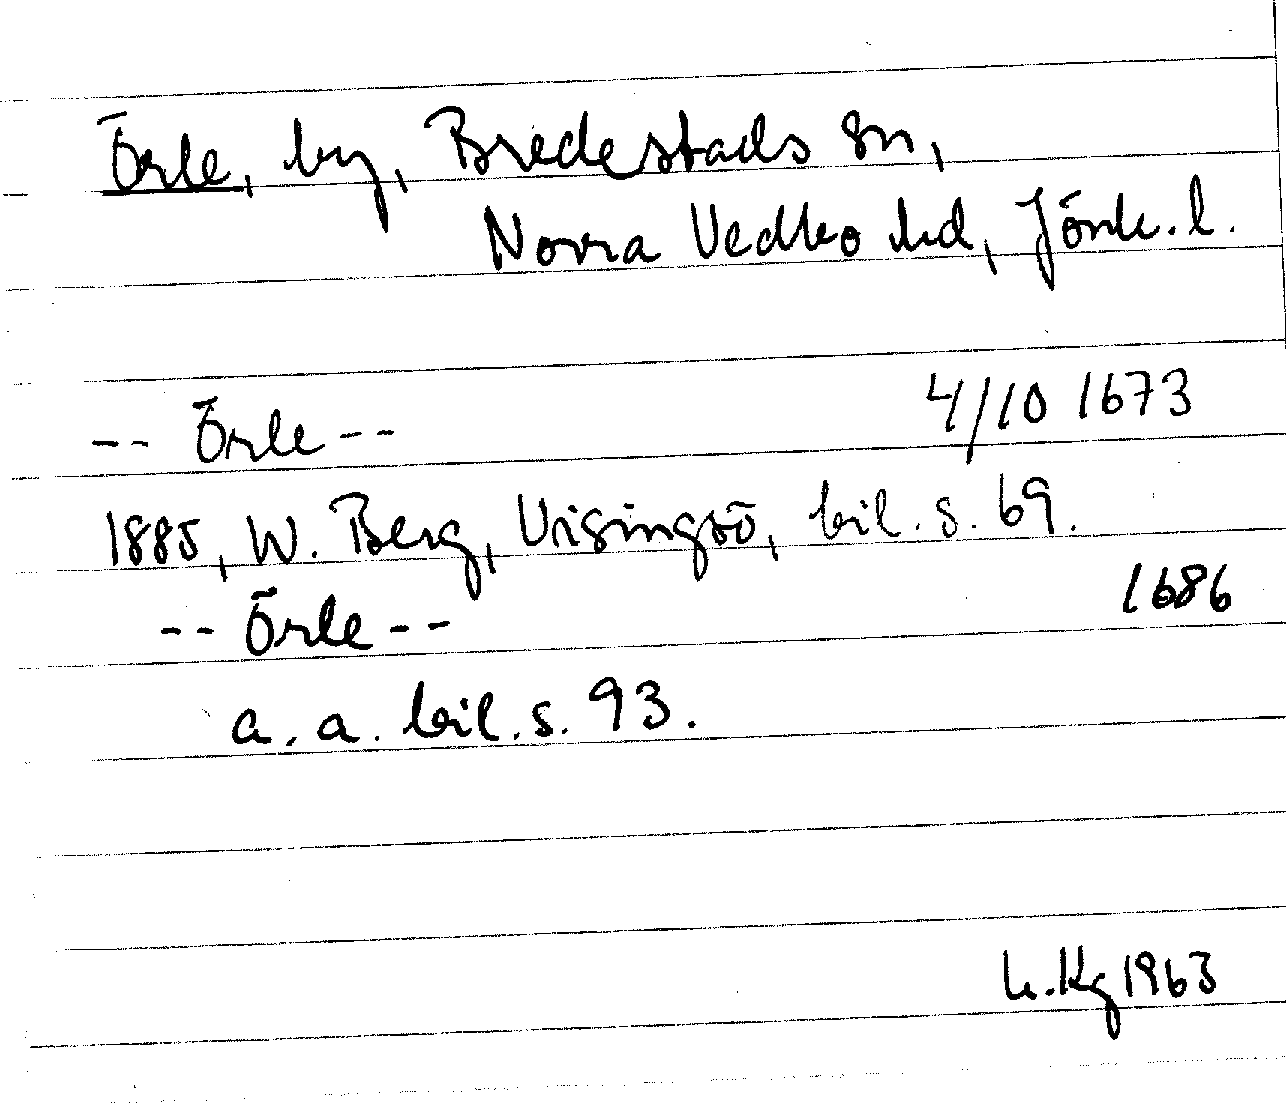 Örle, by, Bredestads sn,
Norra Vedbo hd, Jönk. l.
-- Örle -- 4/10 1673
1885, W. Berg, Visingsö, bil. s. 69.
-- Örle -- 1686
a. a. bil. s. 93.
Kg 1963